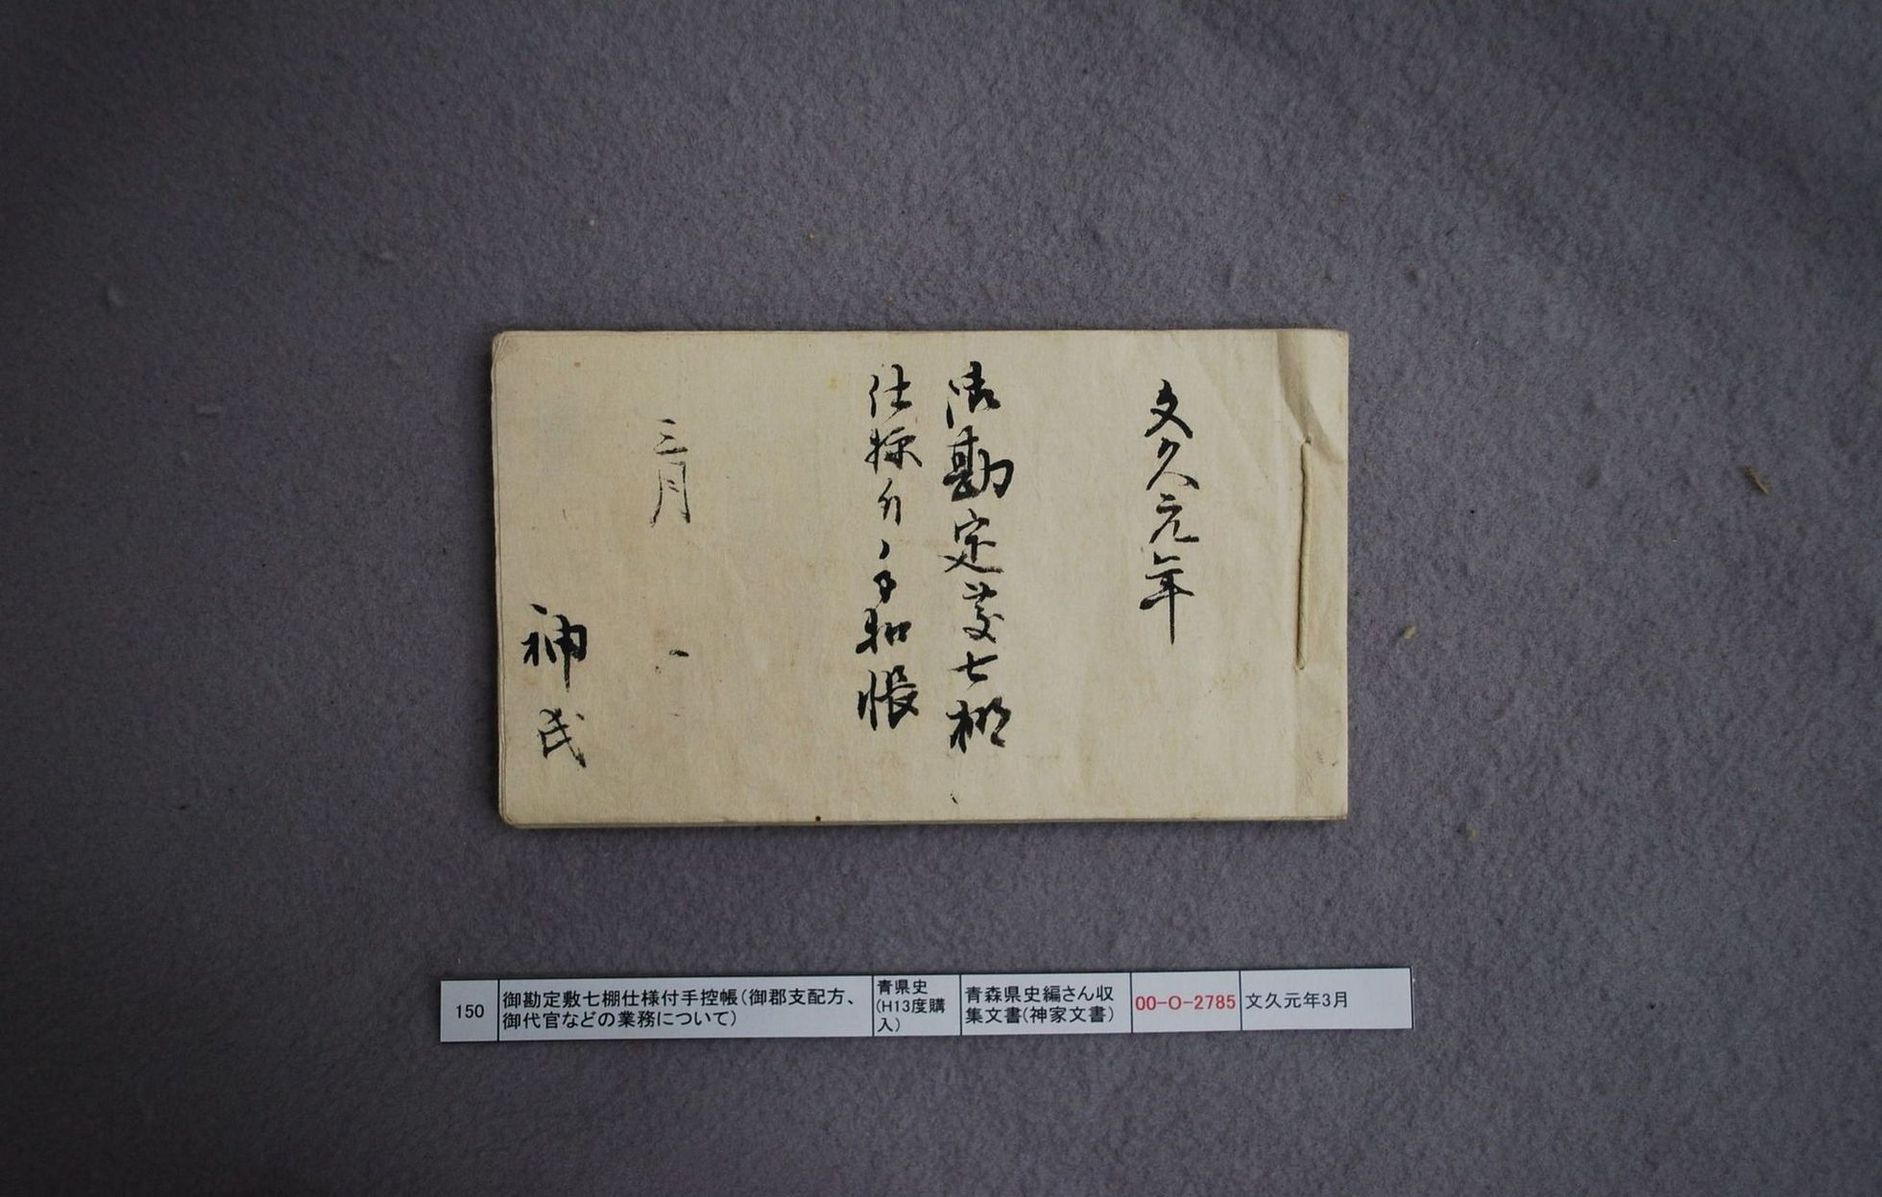 文久元年
御勘定敷七棚
仕様付手扣帳
三月
神氏
150
御勘定敷七棚仕様付手控帳(御郡支配方、
御代官などの業務について)
青県史
(H13度購
入)
青森県史編さん収
集文書(神家文書)
00-O-2785
文久元年3月